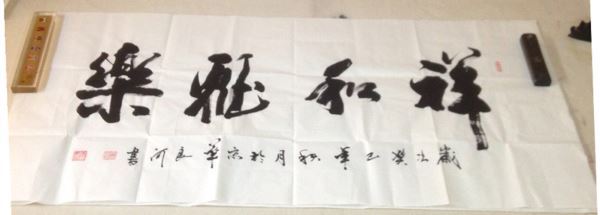 祥和雅樂
歲次癸巳年秋月於京華河書